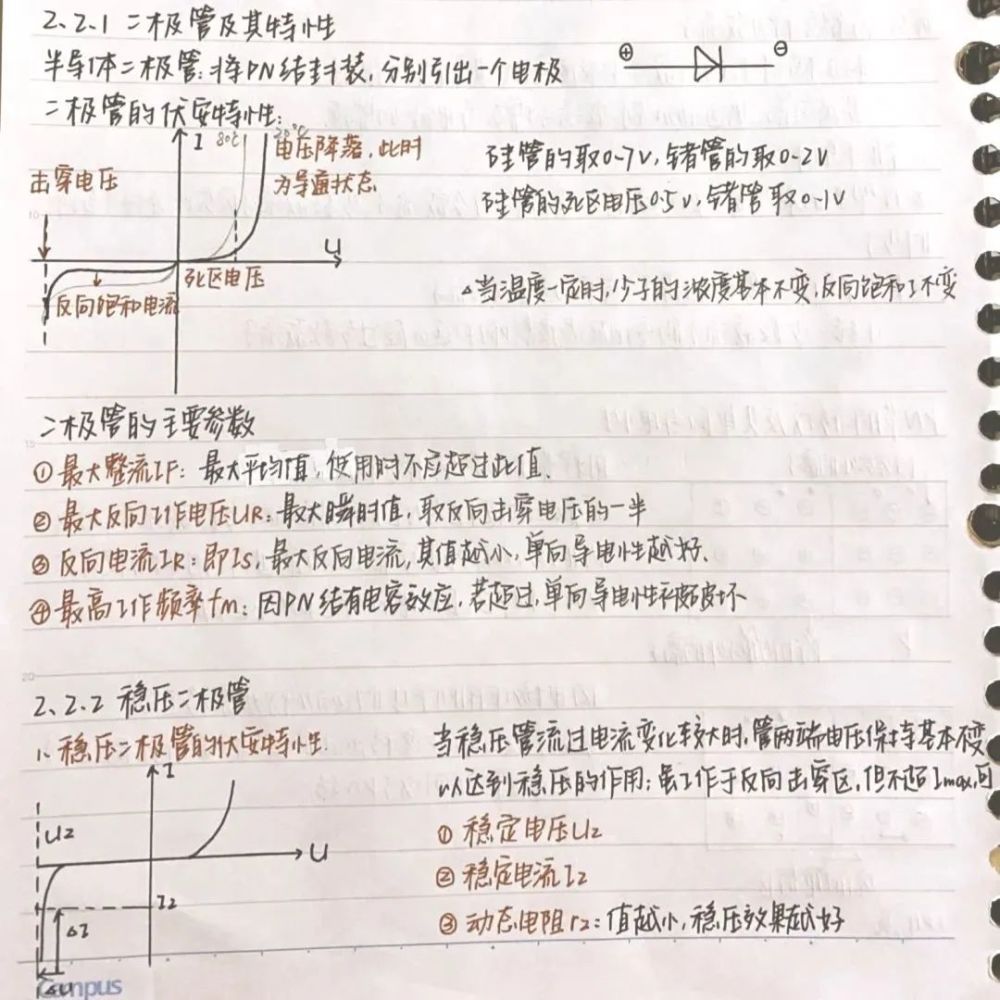 2.2.1 二极管及其特性
半导体二极管:将PN结封装,分别引出一个电极
⊕ ⊖
二极管的伏安特性:
I 80℃ 20℃
电压降落,此时
为导通状态
击穿电压
U
死区电压
反向饱和电流
硅管的取0.7V,锗管的取0.2V
硅管的死区电压0.5V,锗管取0.1V
△当温度一定时,少子的浓度基本不变,反向饱和I不变
二极管的主要参数
① 最大整流IF: 最大平均值,使用时不应超过此值.
② 最大反向工作电压UR: 最大瞬时值,取反向击穿电压的一半
③ 反向电流IR: 即Is,最大反向电流,其值越小,单向导电性越好.
④ 最高工作频率fm: 因PN结有电容效应,若超过,单向导电性被破坏
2.2.2 稳压二极管
1. 稳压二极管的伏安特性:
I
UZ
U
IZ
△I
△U
当稳压管流过电流变化较大时,管两端电压保持基本不变
以达到稳压的作用;虽工作于反向击穿区,但不超Imax,可
① 稳定电压UZ
② 稳定电流IZ
③ 动态电阻rz: 值越小,稳压效果越好
Campus